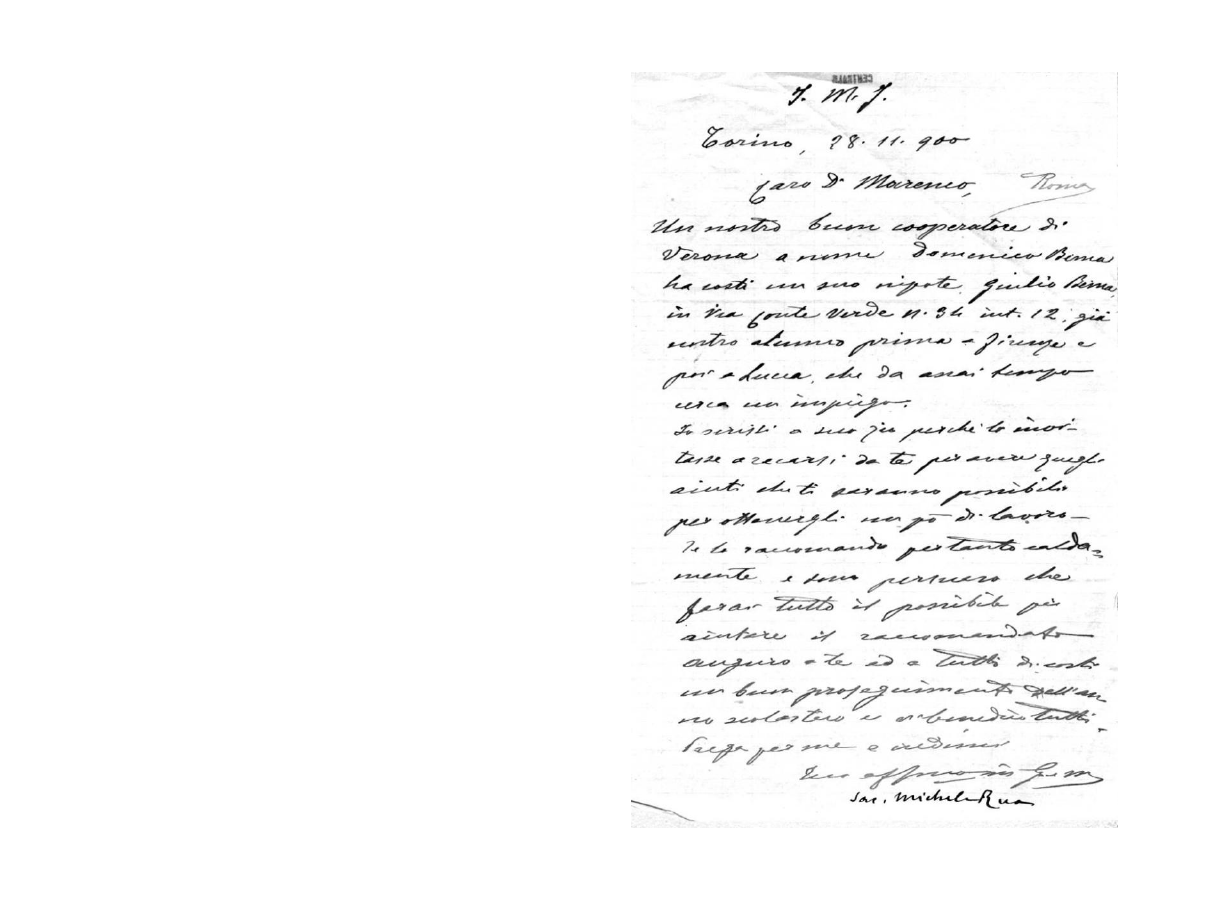 J. M. J.
Torino, 28. 11. 900
Caro D. Marenco,
Roma
Un nostro buon cooperatore di
Verona a nome Domenico Bema
ha costì un suo nipote, Giulio Bema,
in Via Conte Verde n. 34 int. 12, già
nostro alunno prima a Firenze e
poi a Lucca, che da assai tempo
cerca un impiego.
Io scrissi a suo zio perchè lo invi-
tasse a recarsi da te per avere quegli
aiuti che ti saranno possibili
per ottenergli un pò di lavoro-
Te lo raccomando pertanto calda-
mente e sono persuaso che
farai tutto il possibile per
aiutare il raccomandato
auguro a te ed a tutti di costì
un buon proseguimento dell'an
no scolastico e vi benedico tutti.
Prega per me e credimi
Tuo in G. e M.
Sac. Michele Rua